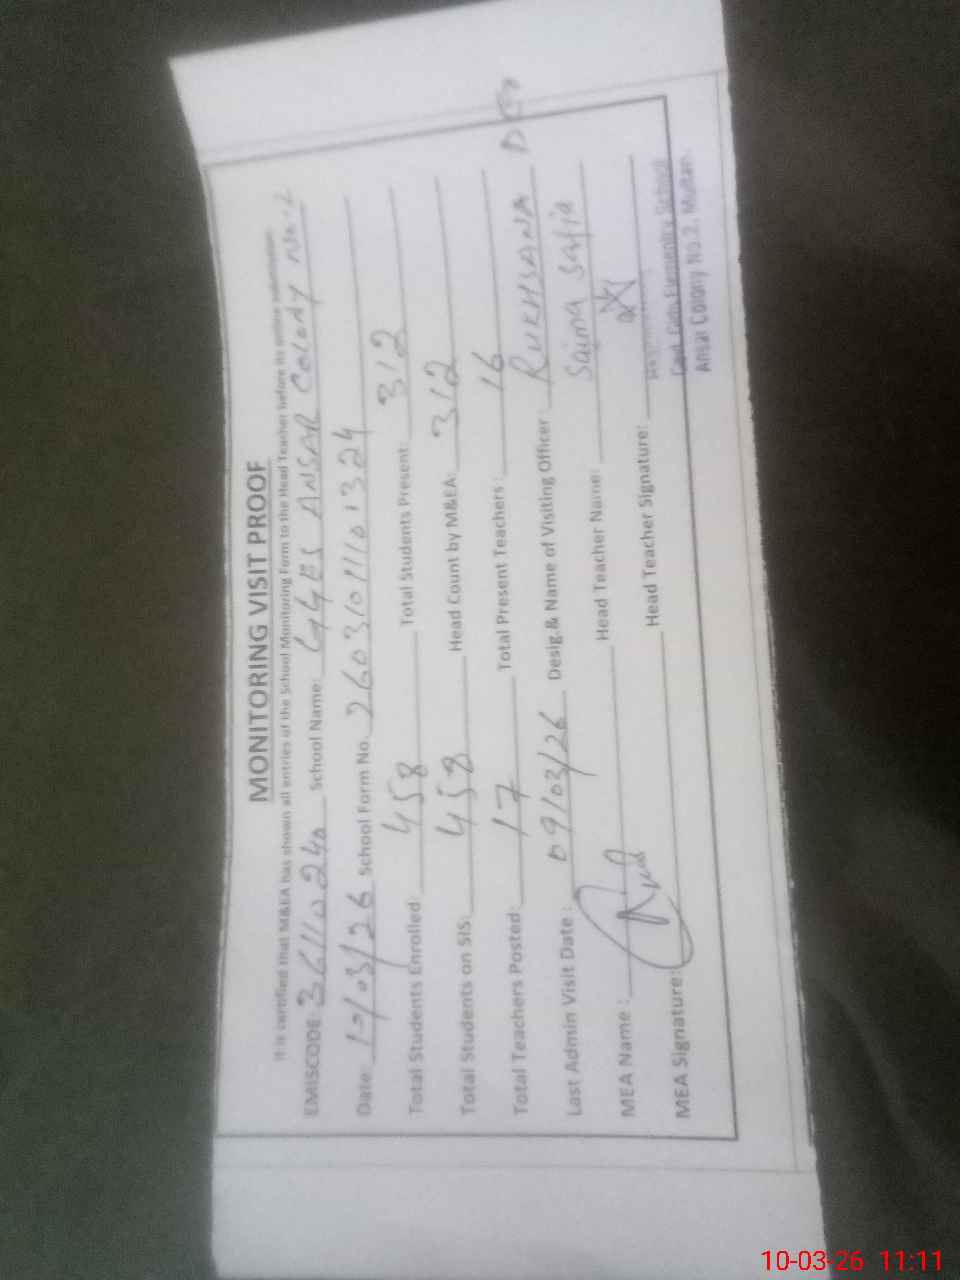 MONITORING VISIT PROOF
It is certified that M&EA has shown all entries of the School Monitoring Form to the Head Teacher before its online submission.
EMISCODE: 36110240 School Name: GGES ANSAR Colony No-2
Date: 10/03/26 School Form No. 260310111101324
Total Students Enrolled: 458 Total Students Present: 312
Total Students on SIS: 458 Head Count by M&EA: 312
Total Teachers Posted: 17 Total Present Teachers: 16
Last Admin Visit Date: 09/03/26 Desig.& Name of Visiting Officer: RUKHSANA DEO
MEA Name: Head Teacher Name: Saima Safia
MEA Signature: Head Teacher Signature:
Govt. Elementary School
Ansar Colony No.2, Multan.
10-03-26 11:11